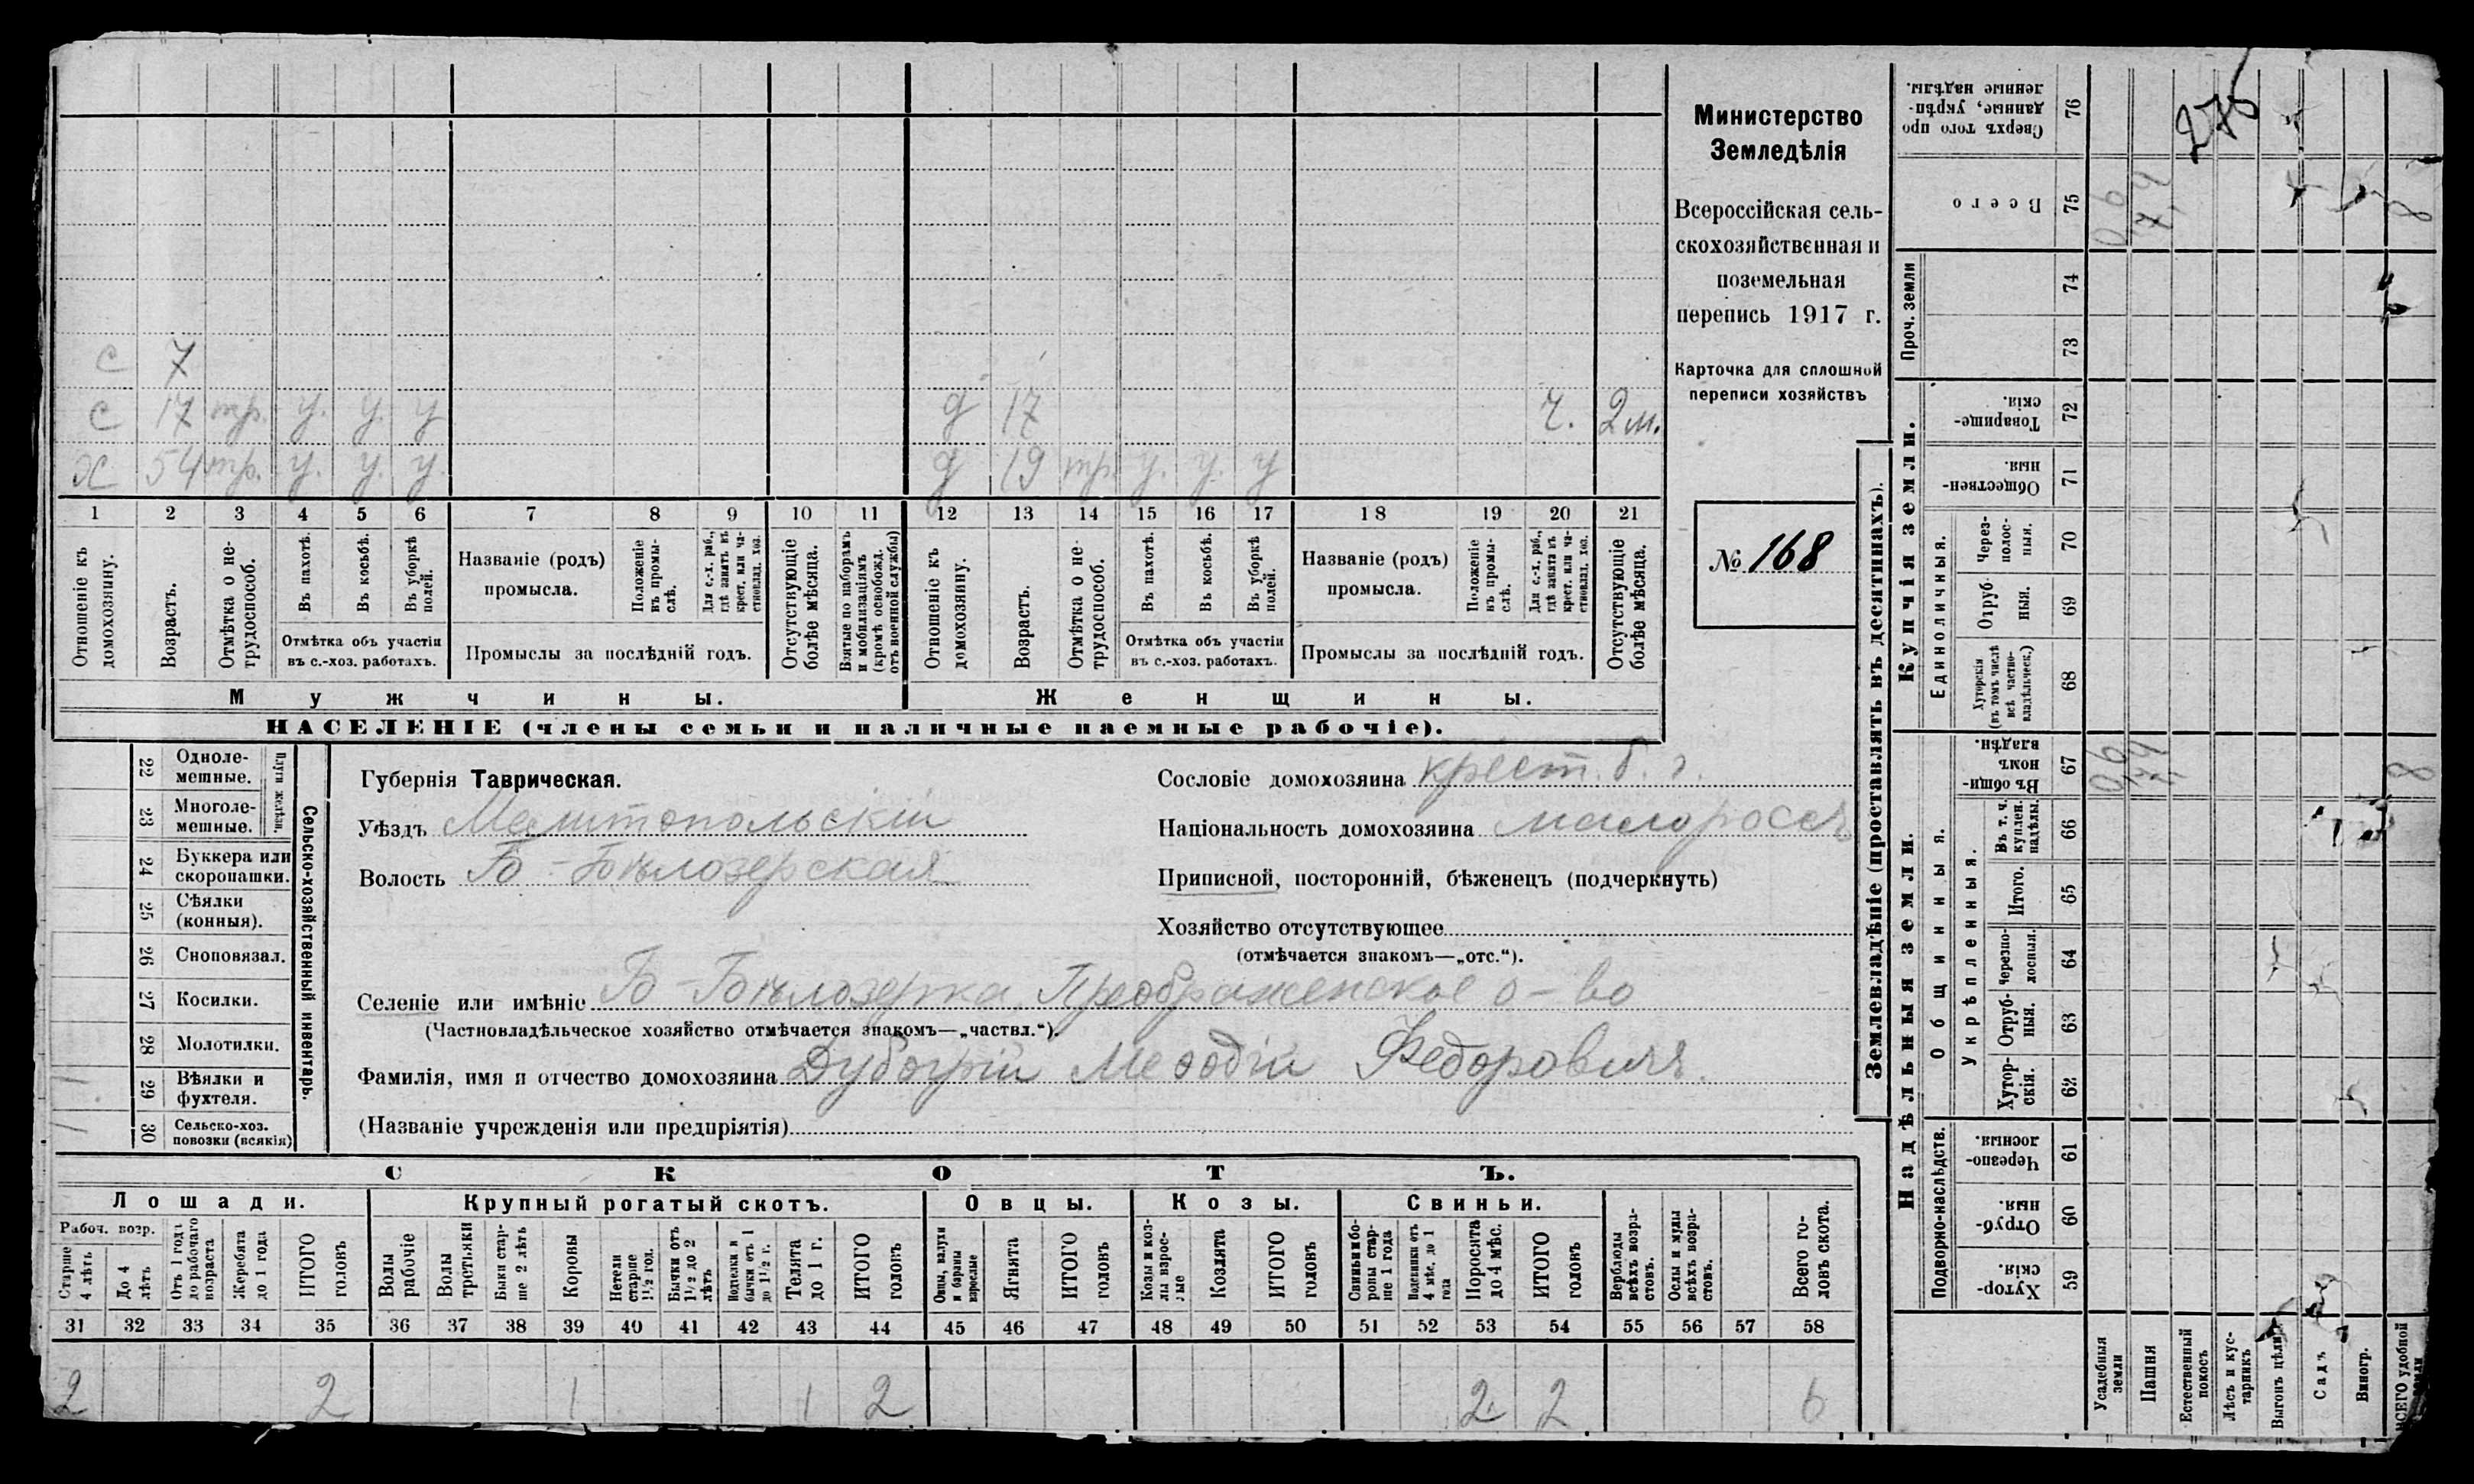 с 7
с 17 тр. у. у. у д 17 г. 2 м.
х 54 тр. у. у. у. д 19 тр. у. у. у
1 2 3 4 5 6 7 8 9 10 11 12 13 14 15 16 17 18 19 20 21
Отношеніе къ домохозяину.
Возрастъ.
Отмѣтка о нетрудоспособ.
Въ пахотѣ.
Въ косьбѣ.
Въ уборкѣ полей.
Отмѣтка объ участіи
въ с.-хоз. работахъ.
Названіе (родъ)
промысла.
Положеніе въ промыслѣ.
Для с.-х. раб., гдѣ занятъ въ крест. или частновлад. хоз.
Промыслы за послѣдній годъ.
Отсутствующіе болѣе мѣсяца.
Взятые по наборамъ и мобилизаціямъ (кромѣ освобожд. отъ военной службы)
Отношеніе къ домохозяину.
Возрастъ.
Отмѣтка о нетрудоспособ.
Въ пахотѣ.
Въ косьбѣ.
Въ уборкѣ полей.
Отмѣтка объ участіи
въ с.-хоз. работахъ.
Названіе (родъ)
промысла.
Положеніе въ промыслѣ.
Для с.-х. раб., гдѣ занята въ крест. или частновлад. хоз.
Промыслы за послѣдній годъ.
Отсутствующіе болѣе мѣсяца.
Мужчины.
Женщины.
НАСЕЛЕНІЕ (члены семьи и наличные наемные рабочіе).
Министерство
Земледѣлія
Всероссійская сель-
скохозяйственная и
поземельная
перепись 1917 г.
Карточка для сплошной
переписи хозяйствъ
№ 168
22 Одноле-
мешные.
23 Многоле-
мешные.
Плуги желѣзн.
24 Буккера или
скоропашки.
25 Сѣялки
(конныя).
26 Сноповязал.
27 Косилки.
28 Молотилки.
29 Вѣялки и
фухтеля.
1
30 Сельско-хоз.
повозки (всякія)
1
Сельско-хозяйственный инвентарь.
Губернія Таврическая.
Уѣздъ Мелитопольскій
Волость Б-Бѣлозерская
Сословіе домохозяина крест. б. г.
Національность домохозяина малороссъ
Приписной, посторонній, бѣженецъ (подчеркнуть)
Хозяйство отсутствующее
(отмѣчается знакомъ—„отс.“).
Селеніе или имѣніе Б-Бѣлозерка Преображенское о-во
(Частновладѣльческое хозяйство отмѣчается знакомъ—„частвл.“).
Фамилія, имя и отчество домохозяина Дубогрій Меѳодій Федоровичъ.
(Названіе учрежденія или предпріятія)
СКОТЪ.
Лошади. Крупный рогатый скотъ. Овцы. Козы. Свиньи.
Рабоч. возр.
Старше 4 лѣтъ
До 4 лѣтъ
Отъ 1 года до рабочаго возраста
Жеребята до 1 года
ИТОГО головъ
Волы рабочіе
Волы третьяки
Быки старше 2 лѣтъ
Коровы
Нетели старше 1 1/2 год.
Бычки отъ 1 1/2 до 2 лѣтъ
Подтелки и бычки отъ 1 до 1 1/2 г.
Телята до 1 г.
ИТОГО головъ
Овцы, валухи и бараны взрослые
Ягнята
ИТОГО головъ
Козы и козлы взрослые
Козлята
ИТОГО головъ
Свиньи и боровы старше 1 года
Подсвинки отъ 4 мѣс. до 1 года
Поросята до 4 мѣс.
ИТОГО головъ
Верблюды всѣхъ возрастовъ.
Ослы и мулы всѣхъ возрастовъ.
Всего головъ скота.
31 32 33 34 35 36 37 38 39 40 41 42 43 44 45 46 47 48 49 50 51 52 53 54 55 56 57 58
2 2 1 1 2 2 2 6
Землевладѣніе (проставлять въ десятинахъ).
276
Сверхъ того проданные, укрѣпленные надѣлы. 76
Всего 75 0,6 7,4 8
Проч. земли 74
73
Купчія земли.
Товарищескія. 72
Общественныя. 71
Единоличныя.
Черезполосныя. 70
Отрубныя. 69
Хуторскія (въ томъ числѣ всѣ частновладѣльческ.) 68
Надѣльныя земли.
Общинныя.
Въ общинномъ владѣн. 67 0,6 7,4 8
Укрѣпленныя.
Въ т. ч. куплен. надѣлы. 66
Итого. 65
Черезполосныя. 64
Отрубныя. 63
Хуторскія. 62
Подворно-наслѣдств.
Черезполосныя. 61
Отрубныя. 60
Хуторскія. 59
Усадебныя земли
Пашня
Естественный покосъ
Лѣсъ и кустарникъ
Выгонъ цѣлин.
Садъ
Виногр.
ВСЕГО удобной земли